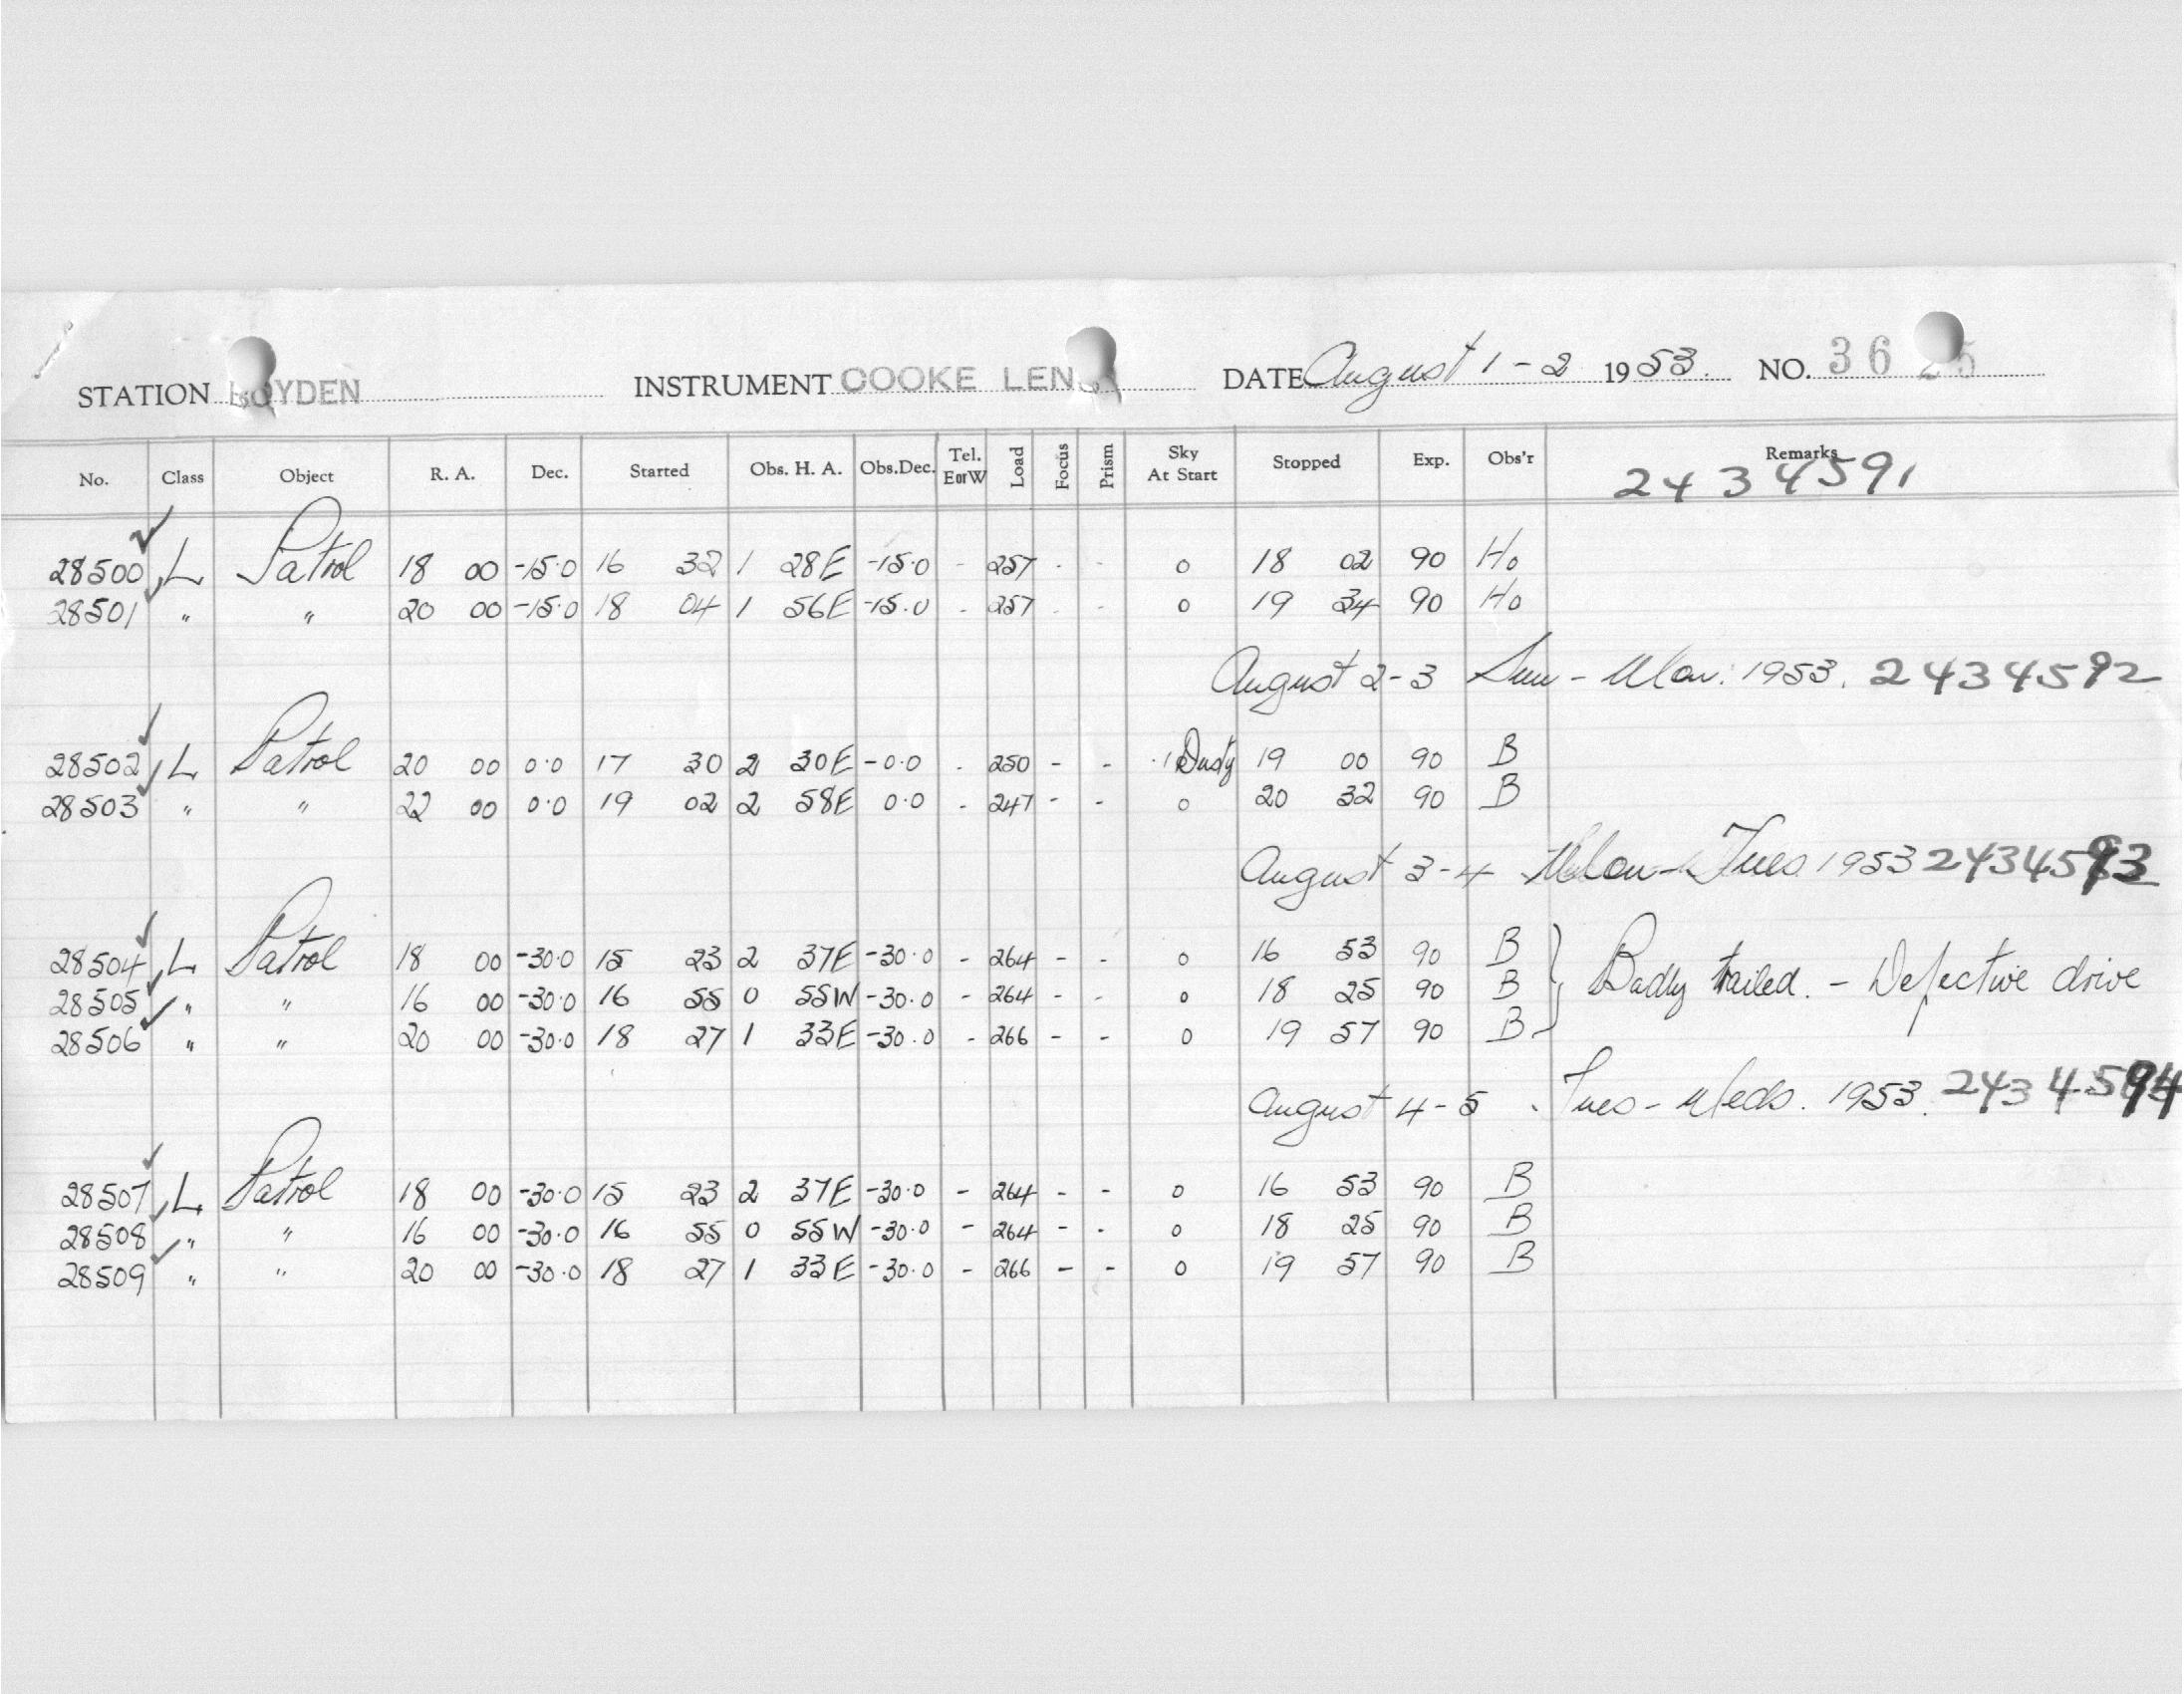 STATION BOYDEN INSTRUMENT COOKE LENS DATE August 1-2 1953. NO. 36 25
No. Class Object R. A. Dec. Started Obs. H. A. Obs.Dec. Tel. E or W Load Focus Prism Sky At Start Stopped Exp. Obs'r Remarks
2434591
28500 L Patrol 18 00 -15.0 16 32 1 28E -15.0 - 257 - - 0 18 02 90 Ho
28501 " " 20 00 -15.0 18 04 1 56E -15.0 - 257 - - 0 19 34 90 Ho
August 2-3 Sun - Mon. 1953. 2434592
28502 L Patrol 20 00 0.0 17 30 2 30E -0.0 - 250 - - .1 Dusty 19 00 90 B
28503 " " 22 00 0.0 19 02 2 58E 0.0 - 247 - - 0 20 32 90 B
August 3-4 Mon - Tues 1953 2434593
28504 L Patrol 18 00 -30.0 15 23 2 37E -30.0 - 264 - - 0 16 53 90 B
28505 " " 16 00 -30.0 16 55 0 55W -30.0 - 264 - - 0 18 25 90 B } Badly trailed. - Defective drive
28506 " " 20 00 -30.0 18 27 1 33E -30.0 - 266 - - 0 19 57 90 B
August 4-5 . Tues - Weds. 1953. 2434594
28507 L Patrol 18 00 -30.0 15 23 2 37E -30.0 - 264 - - 0 16 53 90 B
28508 " " 16 00 -30.0 16 55 0 55W -30.0 - 264 - - 0 18 25 90 B
28509 " " 20 00 -30.0 18 27 1 33E -30.0 - 266 - - 0 19 57 90 B